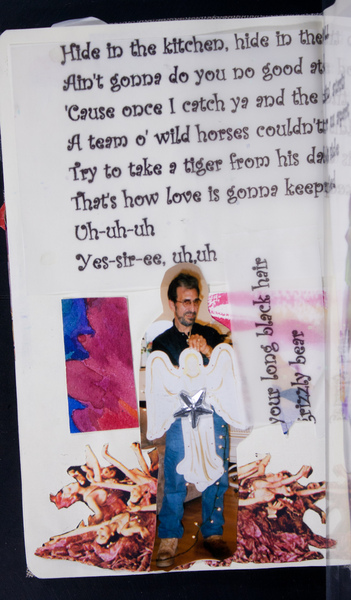 Hide in the kitchen, hide in the
Ain't gonna do you no good at
'Cause once I catch ya and the
A team o' wild horses couldn't
Try to take a tiger from his
That's how love is gonna keep
Uh-uh-uh
Yes-sir-ee, uh,uh
your long black hair
grizzly bear